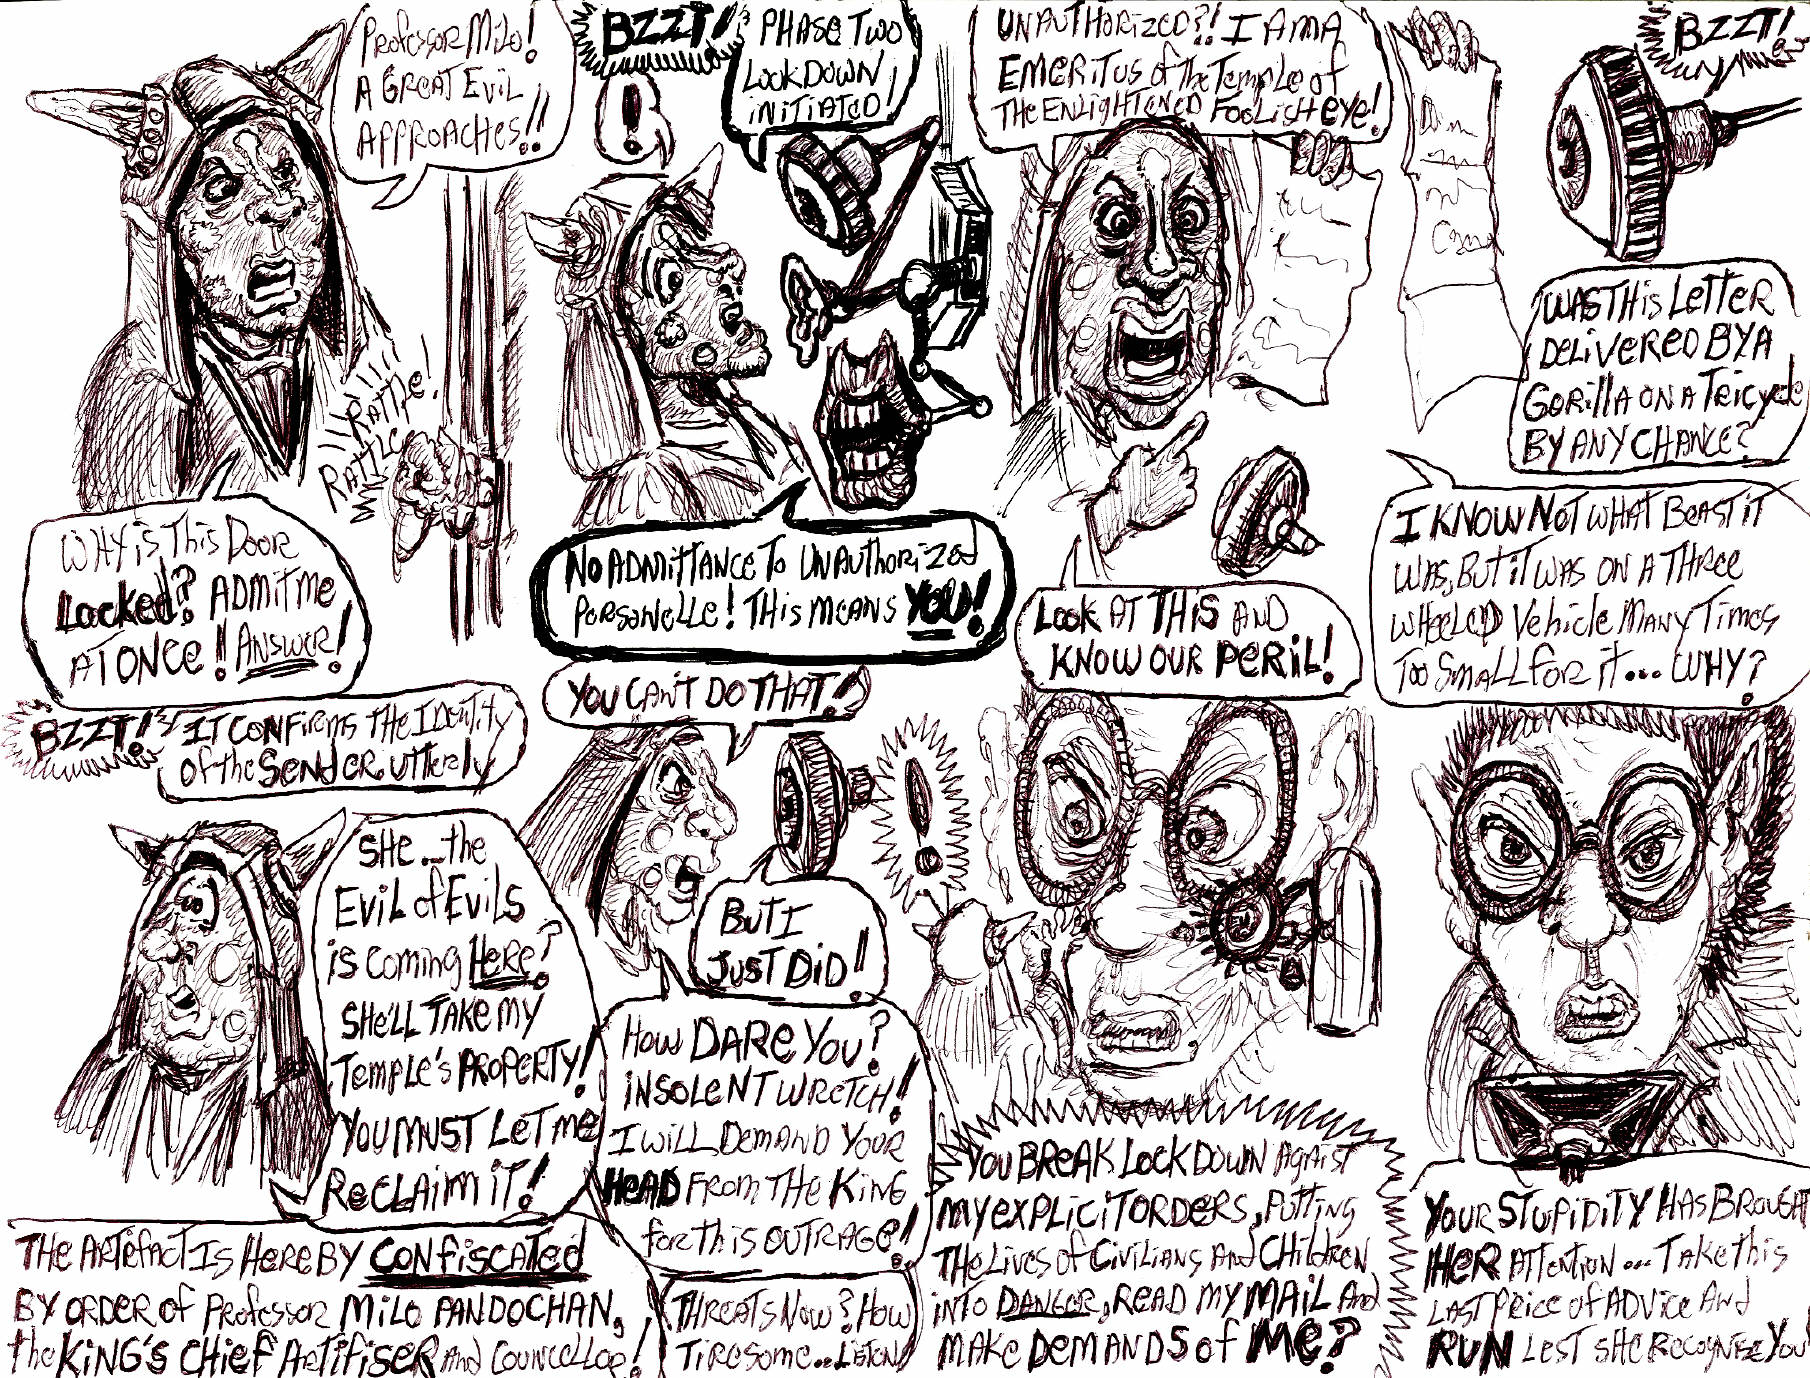 Professor Milo!
A Great Evil
Approaches!!
Why is this Door
Locked? Admit me
At once!! Answer!
Rattle!
Rattle
BZZT!
!
Phase Two
Lockdown
initiated!
No Admittance to Unauthorized
Personelle! This means YOU!
Unauthorized?! I am a
Emeritus of the Temple of
the Enlightened Foolish eye!
Look at THIS and
Know our PERIL!
BZZT!
Was this Letter
Delivered by a
Gorilla on a Tricycle
by any chance?
I know not what Beast it
was, but it was on a three
wheeled Vehicle many times
too small for it... Why?
BZZT!
It confirms the Identity
of the Sender utterly
She... the
Evil of Evils
is coming Here?
She'll take my
Temple's Property!
You must let me
Reclaim it!
The Artefact is Hereby CONFISCATED
By order of Professor Milo Pandochan,
the King's Chief Artifiser and Councellor!
You can't do that!!
But I
Just Did!!
How DARE You?
Insolent wretch!
I will Demand your
HEAD from the King
for this outrage!
Threats Now? How
Tiresome... Listen
!
You Break Lockdown Against
my explicit orders, Putting
the Lives of Civilians and Children
into Danger, Read my Mail and
make Demands of ME?
Your stupidity has brought
HER attention... Take this
Last Price of advice and
RUN lest she recognise you